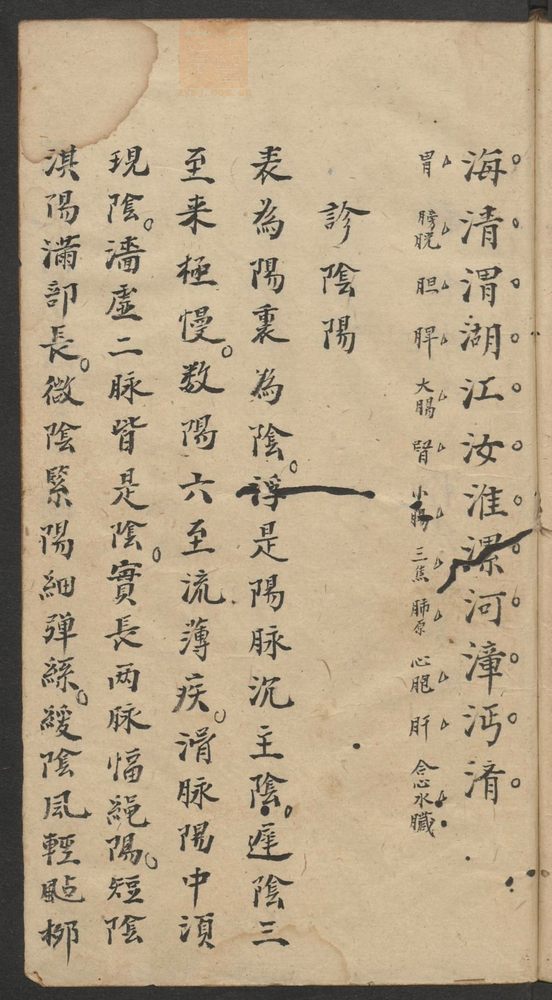 海清渭湖江汝淮漯河漳沔淯
胃 膀胱 胆 脾 大腸 腎 小腸 三焦 肺原 心胞 肝 念水臟
診陰陽
表為陽裏為陰浮是陽脉沉主陰遲陰三
至来極慢数陽六至流薄疾滑脉陽中須
現陰濇虛二脉皆是陰實長两脉愊繩陽短陰
淇陽滿部長微陰緊陽細弹絲緩陰風輕颭柳